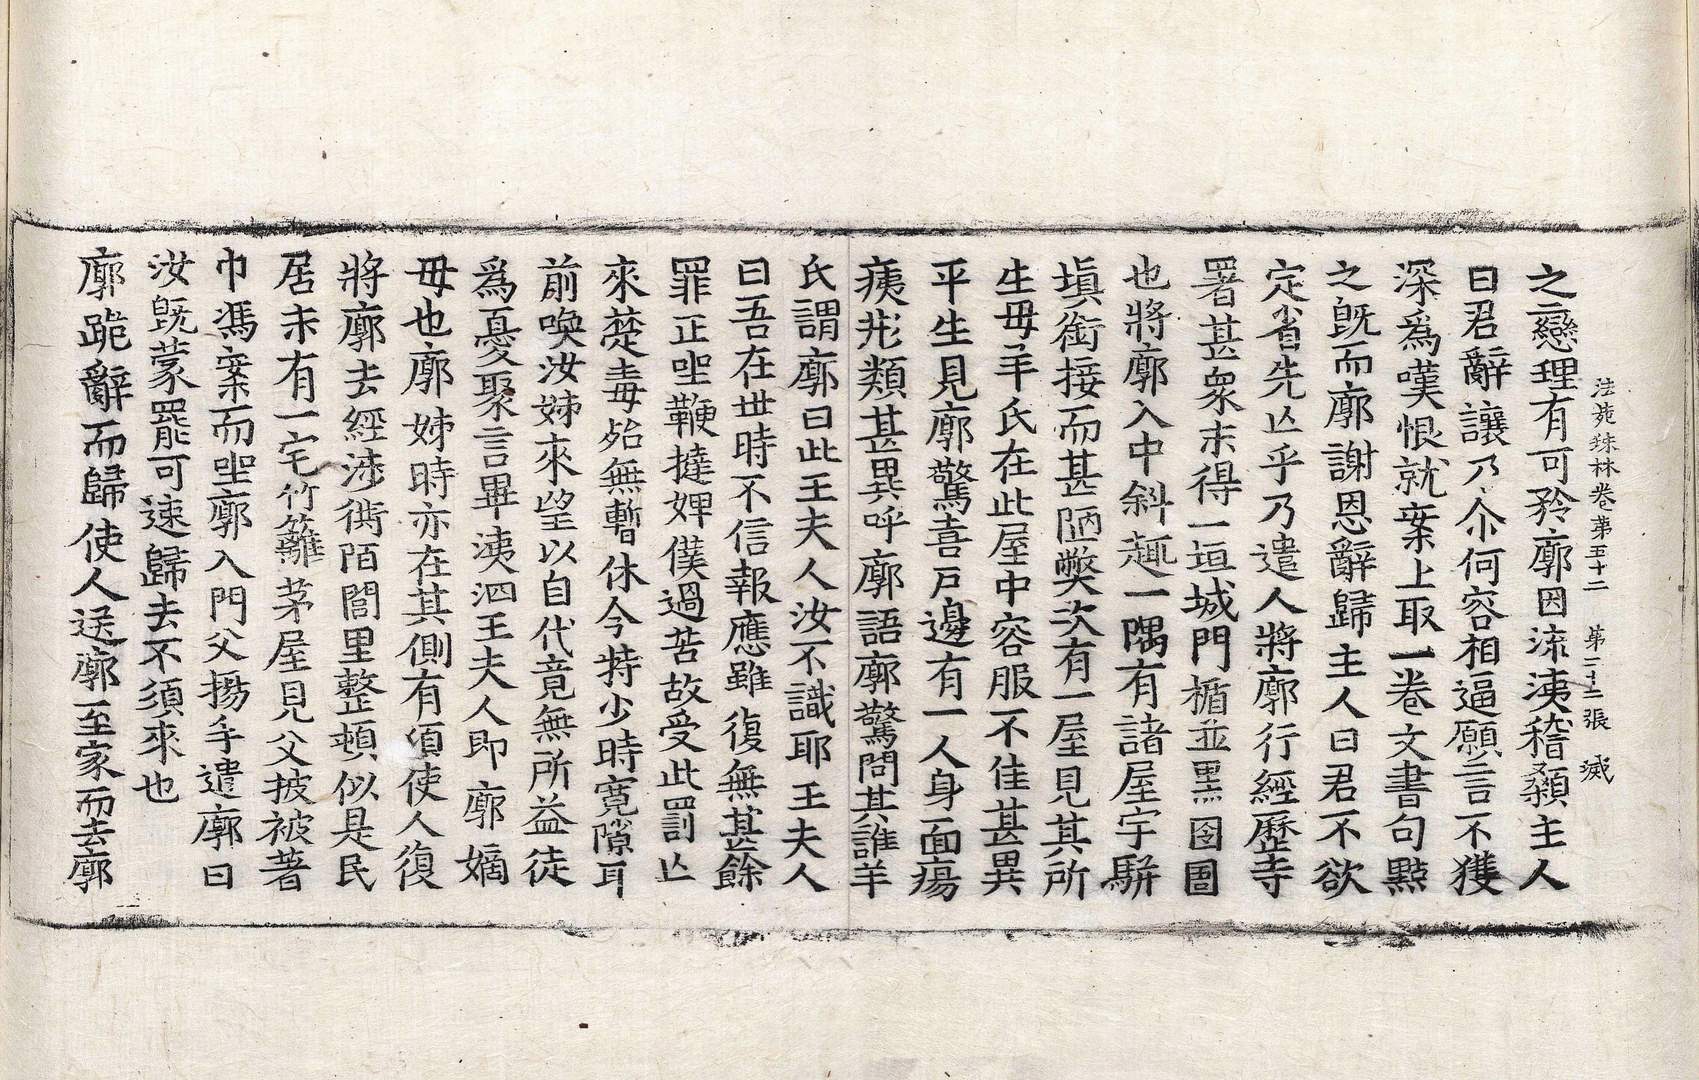 法苑珠林卷第五十二 第二十二張 滅
之戀理有可矜廓因流洟稽顙主人
曰君辭讓乃尒何容相逼願言不獲
深爲嘆恨就案上取一卷文書句點
之旣而廓謝恩辭歸主人曰君不欲
定省先亾乎乃遣人將廓行經歷寺
署甚衆末得一垣城門楯並黑囹圄
也將廓入中斜趣一隅有諸屋宇駢
塡銜接而甚陋弊次有一屋見其所
生毋羊氏在此屋中容服不佳甚異
平生見廓驚喜戸邊有一人身面瘍
痍形類甚異呼廓語廓驚問其誰羊
氏謂廓曰此王夫人汝不識耶王夫人
曰吾在世時不信報應雖復無甚餘
罪正坐鞭撻婢僕過苦故受此罰亾
來楚毒殆無暫休今特少時寛隙耳
前喚汝姊來望以自代竟無所益徒
爲憂聚言畢洟泗王夫人即廓嫡
毋也廓姊時亦在其側有須使人復
將廓去經涉衖陌閭里整頓似是民
居末有一宅竹籬茅屋見父披被著
巾馮案而坐廓入門父揚手遣廓曰
汝旣蒙罷可速歸去不須來也
廓跪辭而歸使人送廓至家而去廓